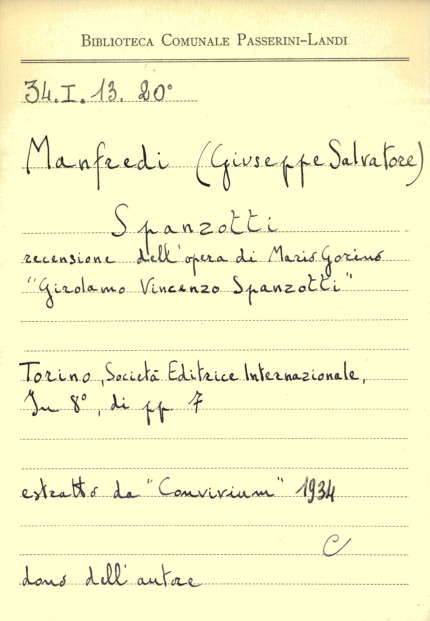 BIBLIOTECA COMUNALE PASSERINI-LANDI
34.I.13.20°
Manfredi (Giuseppe Salvatore)
Spanzotti
recensione dell'opera di Mario Gorino
"Girolamo Vincenzo Spanzotti"
Torino, Società Editrice Internazionale,
In 8°, di pp 7
estratto da "Convivium" 1934
C
dono dell'autore